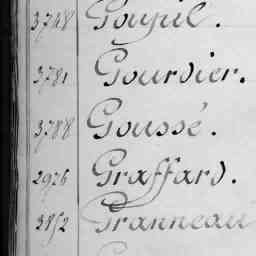 3748 Goyül.
3781 Gourdier.
3788 Goussé.
2976 Graffard.
3852 Granneau